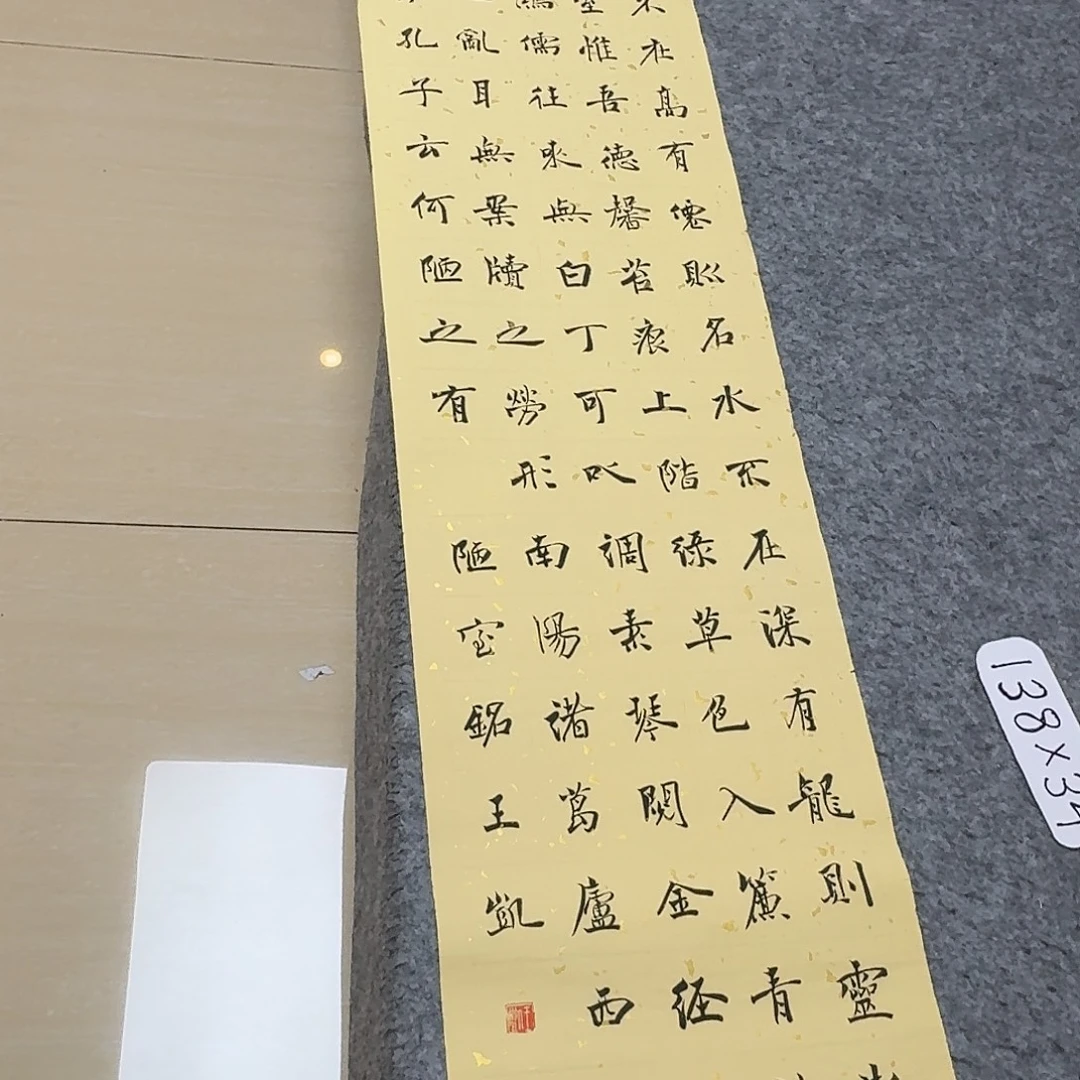 不在高有僊則名水不在深有龍則靈
室惟吾德馨苔痕上階綠草色入簾青
鴻儒往來無白丁可以調素琴閱金經
亂耳無案牘之勞形南陽諸葛廬西
孔子云何陋之有
陋室銘王凱
138×34